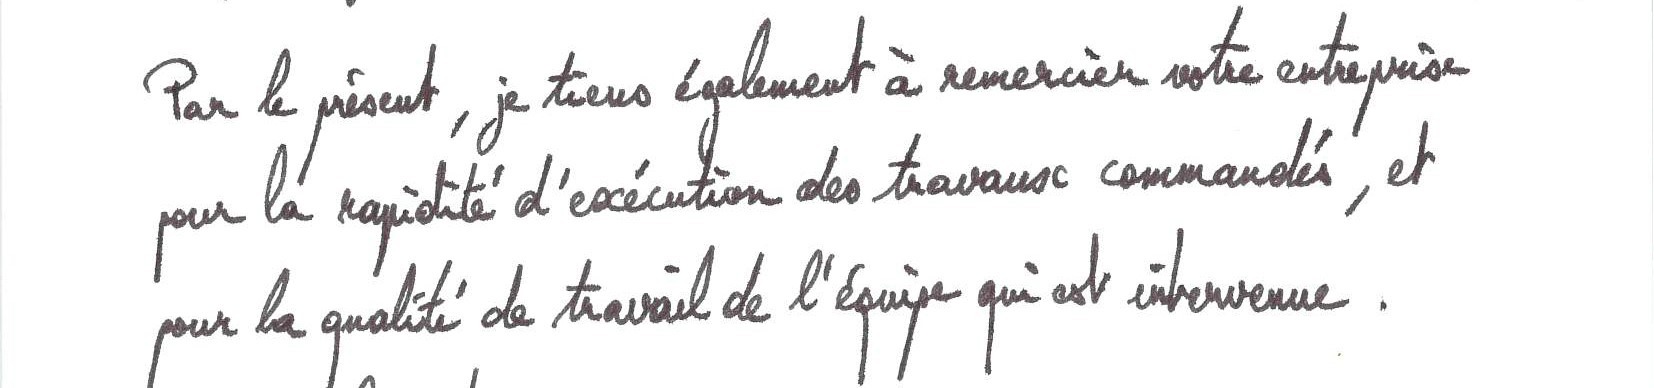 Par le présent, je tiens également à remercier votre entreprise
pour la rapidité d'exécution des travaux commandés, et
pour la qualité de travail de l'équipe qui est intervenue.